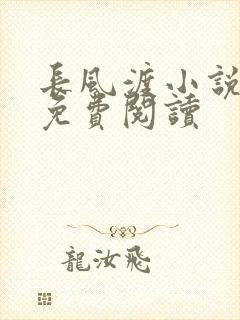 長風渡小說
免費閱讀
龍汝飛